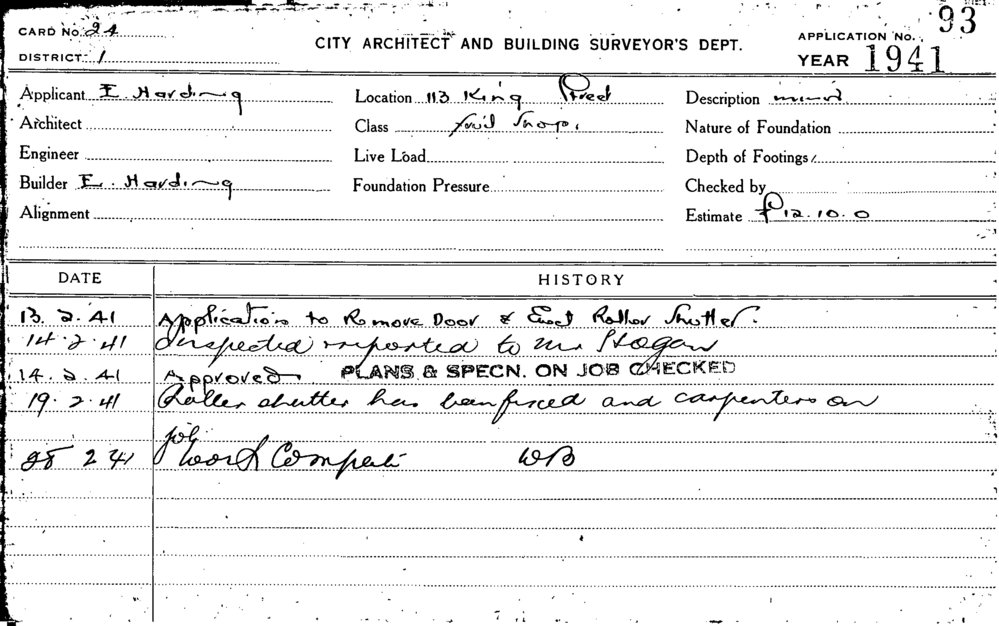 93
CARD No. 24
CITY ARCHITECT AND BUILDING SURVEYOR'S DEPT.
APPLICATION No.
DISTRICT 1
YEAR 1941
Applicant E Harding
Location 113 King Street
Description minor
Architect
Class Fruit Shop.
Nature of Foundation
Engineer
Live Load
Depth of Footings
Builder E. Harding
Foundation Pressure
Checked by
Alignment
Estimate £12.10.0
DATE
HISTORY
13.2.41 Application to Remove Door & Erect Roller Shutter.
14.2.41 Inspected reported to Mr Hogan
14.2.41 Approved PLANS & SPECN. ON JOB CHECKED
19.2.41 Roller shutter has been fixed and carpenters on
job
28 2 41 Work Complete WB